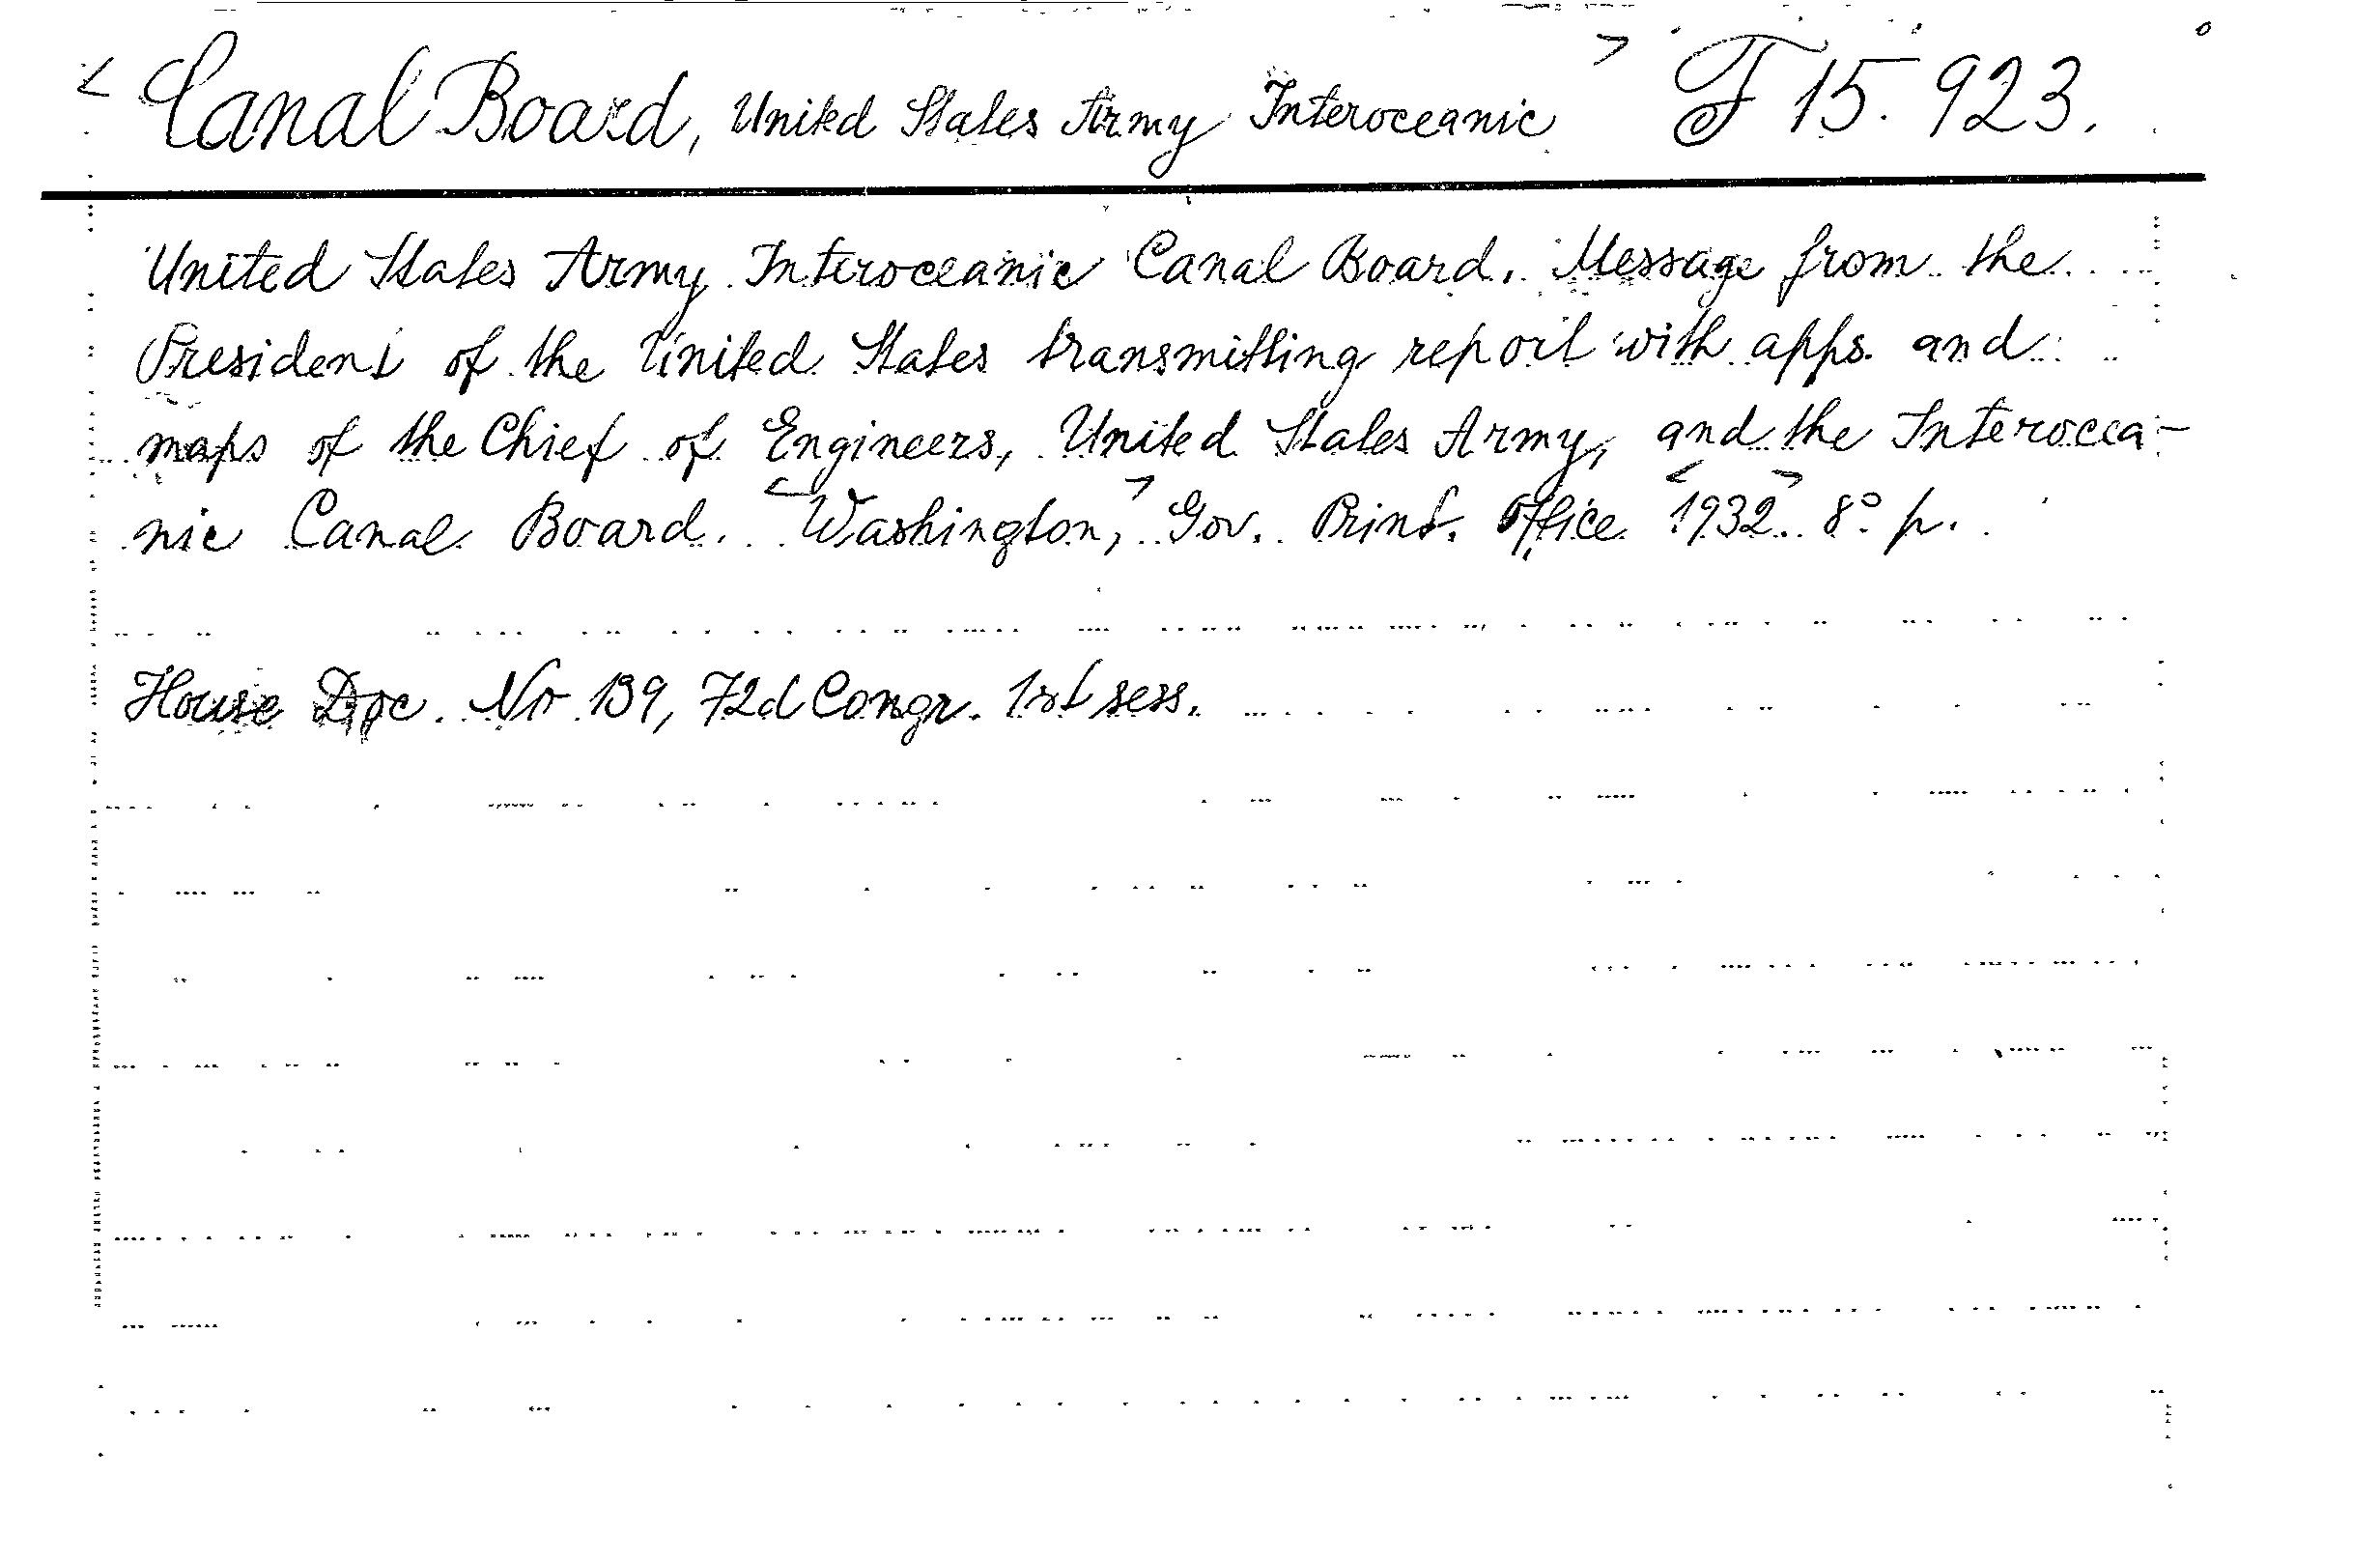 < Canal Board, United States Army Interoceanic > F 15. 923.
United States Army Interoceanic Canal Board. Message from the
President of the United States transmitting report with apps. and
maps of the Chief of Engineers, United States Army, and the Interocea-
nic Canal Board. <Washington,> Gov. Print. Office <1932>. 8° p.
House Doc. No 139, 72d Congr. 1st sess.